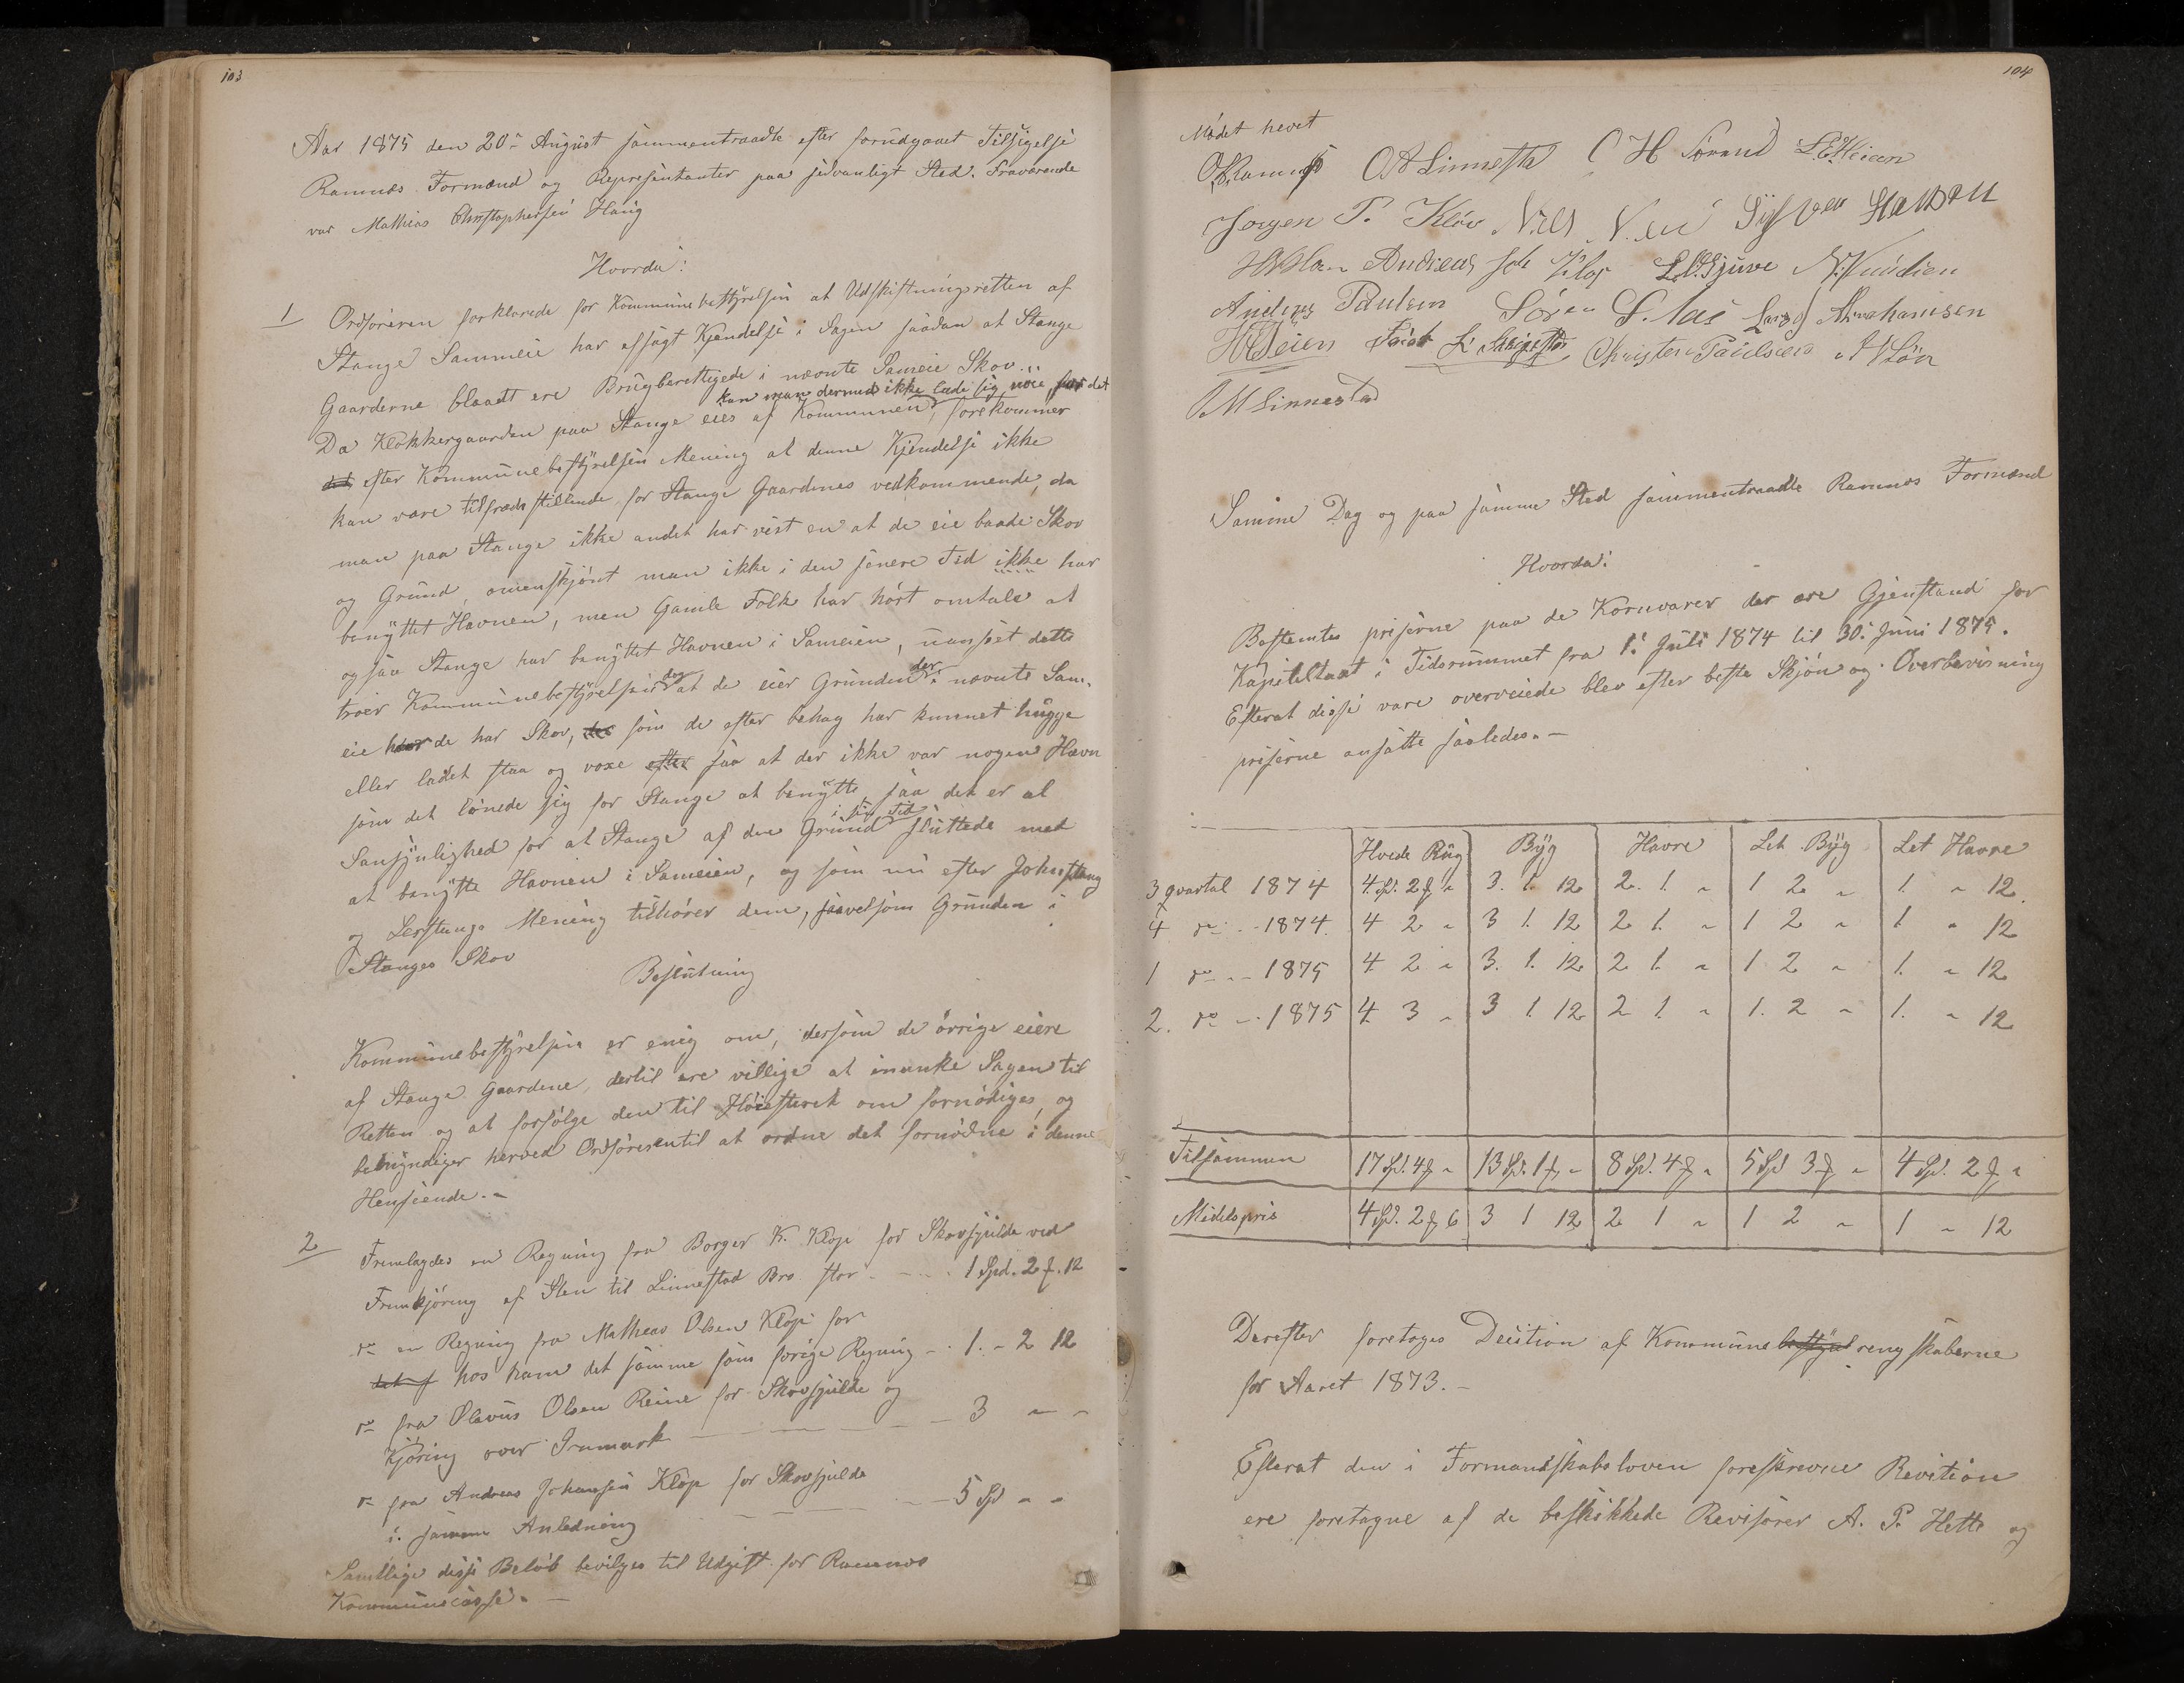 103
Aar 1875 den 20de August sammentraadte efter forudgaaet Tilsigelse
Ramnæs Formænd og Representanter paa sedvanligt Sted. Fraværende
var Mathias Christophersen Haug
Hvorda:
1 Ordføreren forklarede for Kommunebestyrelsen at Udskiftningsretten af
Stange Sammeie har afsagt Kjendelse i Sagen saadan at Stange
Gaarderne blaadt ere Brugberettigede i nævnte Sameie Skov.
kan man dermed ikke lade sig nöie, for det
Da Klokkergaarden paa Stange eies af Kommunen, forekommer
det efter Kommunebestyrelsens Mening at denne Kjendelse ikke
kan være tilfredsstillende for Stange Gaardenes vedkommende, da
man paa Stange ikke andet har vist en at de eie baade Skov
og Grund, omenskjönt man ikke i den senere Tid ikke har
benyttet Havnen, men Gamle Folk har hört omtale at
ogsaa Stange har benyttet Havnen i Sameien, uanseet dette
troer Kommunebestyrelsen dog at de eier Grunden der i nævnte Sam-
eie hvor de har Skov, der som de efter behag har kunnet hugge
eller ladet staa og voxe efter saa at der ikke var nogen Havn
som det lönede sig for Stange at benytte, saa det er al
Sansynlighed for at Stange af den Grund i sin Tid sluttede med
at benytte Havnen i Sameien, og som nu efter John Stang
og Lers Stangs Mening tilhörer dem, saavelsom Grunden i
Stanges Skov
Beslutning
Kommunebestyrelsen er enig om, dersom de örrige eiere
af Stange Gaardene, dertil ere villige at inanke Sagen til
Retten og at forfölge den til Höiesteret om fornödiges, og
bemyndiger herved Ordföreren til at ordne det fornödne i denne
Henseende.-
2 Fremlagdes en Regning fra Borger K. Klöp for Skovsjulde ved
Fremkjöring af Sten til Linnestad Bro stor - - - 1 Spd. 2 ƒ. 12
do en Regning fra Matheas Olsen Klöp for
det f hos ham det samme som forige Regning - . 1. - 2 12
do fra Olavus Olsen Reine for Skovsjulde og
Kjöring over Inmark - - - - 3 - -
do fra Andreas Johansen Klöp for Skovsjulde
i samme Anledning - - - 5 Spd - -
Samtlige disse Belöb bevilges til Udgift for Ramnæs
Kommunecasse. -
104
Mödet hevet
O. Ramnæs O A Linnestad C H Sørand L. E. Heian
Jørgen P. Klöv Nils N. Sylfver Hansen
Andreas Joh Klöp L. O. Gjuve N. Knudsen
Anders Paulsen Sören S. Aas Lars Abrahamsen
H Seien Christen Paulsen
M Linnestad
Samme Dag og paa samme Sted sammentraadte Ramnæs Formænd
Hvorda:
Bestemtes priserne paa de Kornvarer der ere Gjenstand for
Kapiteltaxt i Tidsrummet fra 1te Juli 1874 til 30te Juni 1875.
Efterat disse vare overveiede blev efter beste Skjön og Overbevisning
priserne ansatte saaledes.-
Hvede Rug | Byg | Havre | Let Byg | Let Havre
3 qvartal 1874 | 4 Sp. 2 ƒ " | 3. 1. 12 | 2. 1. " | 1 2 " | 1. " 12
4 do - - 1874 | 4 2 " | 3 1. 12 | 2 1. " | 1 2 " | 1 " 12
1 do - - 1875 | 4 2 " | 3. 1. 12 | 2 1. " | 1 2 " | 1. " 12
2. do - - 1875 | 4. 3 " | 3 1 12 | 2 1. " | 1. 2 " | 1. " 12
Tilsammen | 17 Sp. 4 ƒ " | 13 Sp. 1 ƒ " | 8 Sp. 4 ƒ " | 5 Sp 3 ƒ " | 4 Sp. 2 ƒ "
Midelspris | 4 Sp. 2 ƒ 6 | 3 1 12 | 2 1 " | 1 2 " | 1 " 12
Derefter foretoges Decition af Kommunebestyrel rengskaberne
for Aaret 1873.-
Efterat den i Formandskabsloven foreskrevne Revition
ere foretagne af de beskikkede Revisorer A. P. Hette og